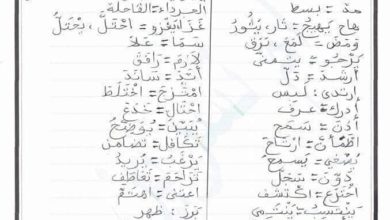 مدّ = بسط
هاج يهيج = ثار، يثور
ومض = لمع، برق
يرجو = يتمنى
أرشد = دلّ
ارتدى = لبس
أدرك = عرف
أذن = سمح
اطمأن = ارتاح
يصغي = يسمع
دوّن = سجّل
اخترع = اكتشف
ينتسب = ينتمي
الجرداء = القاحلة
غزا، يغزو = احتلّ، يحتلّ
سما = علا
لازم = رافق
أيّد = ساند
امتزج = اختلط
احتال = خدع
يبيّن = يوضّح
تكافل = تضامن
يرغب = يريد
تراحم = تعاطف
اعتنى = اهتم
برز = ظهر